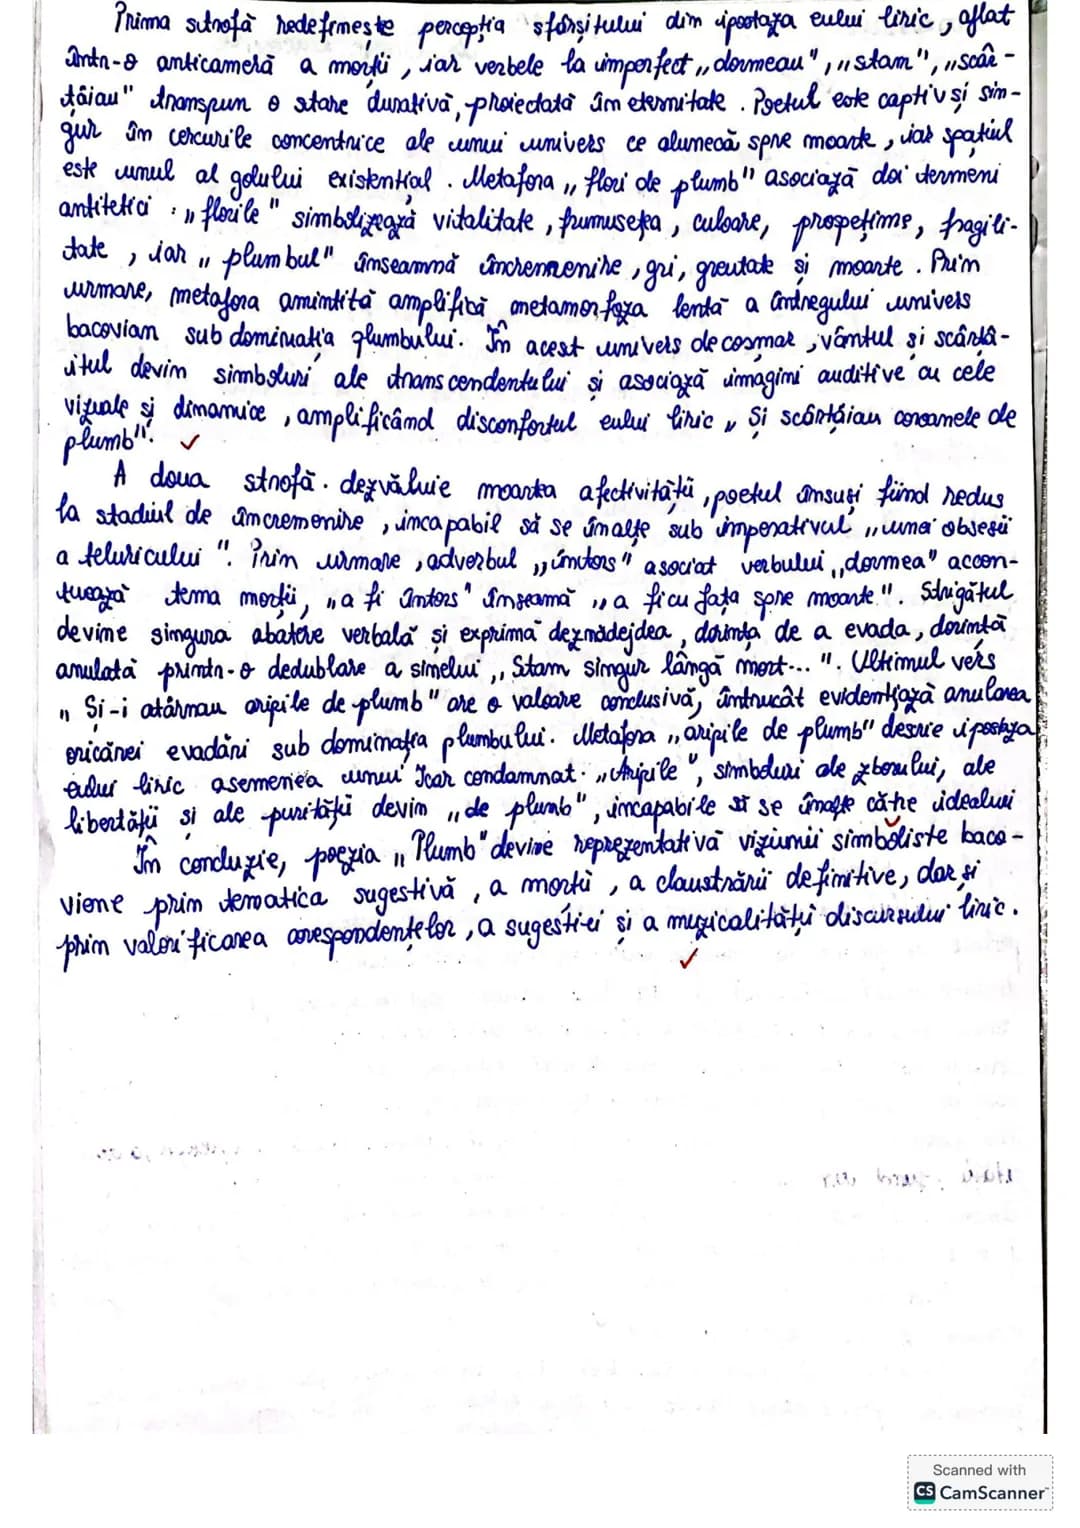 Prima strofă redefinește percepția sfârșitului din ipostaza eului liric, aflat
într-o anticameră a morții, iar verbele la imperfect „dormeau", „stam", „scâr-
țâiau" transpun o stare durativă, proiectată în eternitate. Poetul este captiv și sin-
gur în cercurile concentrice ale unui univers ce alunecă spre moarte, iar spațiul
este unul al golului existențial. Metafora „flori de plumb" asociază doi termeni
antitetici: „florile" simbolizează vitalitate, frumusețea, culoare, prospețime, fragili-
tate, iar „plumbul" înseamnă încremenire, gri, greutate și moarte. Prin
urmare, metafora amintită amplifică metamorfoza lentă a întregului univers
bacovian sub dominația plumbului. În acest univers de coșmar, vântul și scârțâ-
itul devin simboluri ale transcendentului și asociază imagini auditive cu cele
vizuale și dinamice, amplificând disconfortul eului liric „Și scârțâiau coroanele de
plumb".
A doua strofă dezvăluie moartea afectivității, poetul însuși fiind redus
la stadiul de încremenire, incapabil să se înalțe sub imperativul „unei obsesii
a teluricului". Prin urmare, adverbul „întors" asociat verbului „dormea" accen-
tuează tema morții, „a fi întors" înseamă „a fi cu fața spre moarte". Strigătul
devine singura abatere verbală și exprimă deznădejdea, dorința de a evada, dorință
anulată printr-o dedublare a sinelui „Stam singur lângă mort...". Ultimul vers
„Și-i atârnau aripile de plumb" are o valoare conclusivă, întrucât evidențiază anularea
oricărei evadări sub dominația plumbului. Metafora „aripile de plumb" descrie ipostaza
eului liric asemenea unui Icar condamnat. „Aripile", simboluri ale zborului, ale
libertății și ale purității devin „de plumb", incapabile să se înalțe către idealuri
În concluzie, poezia „Plumb" devine reprezentativă viziunii simboliste baco-
viene prin tematica sugestivă, a morții, a claustrării definitive, dar și
prin valorificarea corespondențelor, a sugestiei și a muzicalității discursului liric.
Scanned with
CS CamScanner